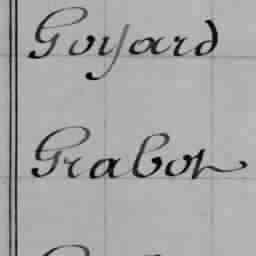 Goyard
Grabot